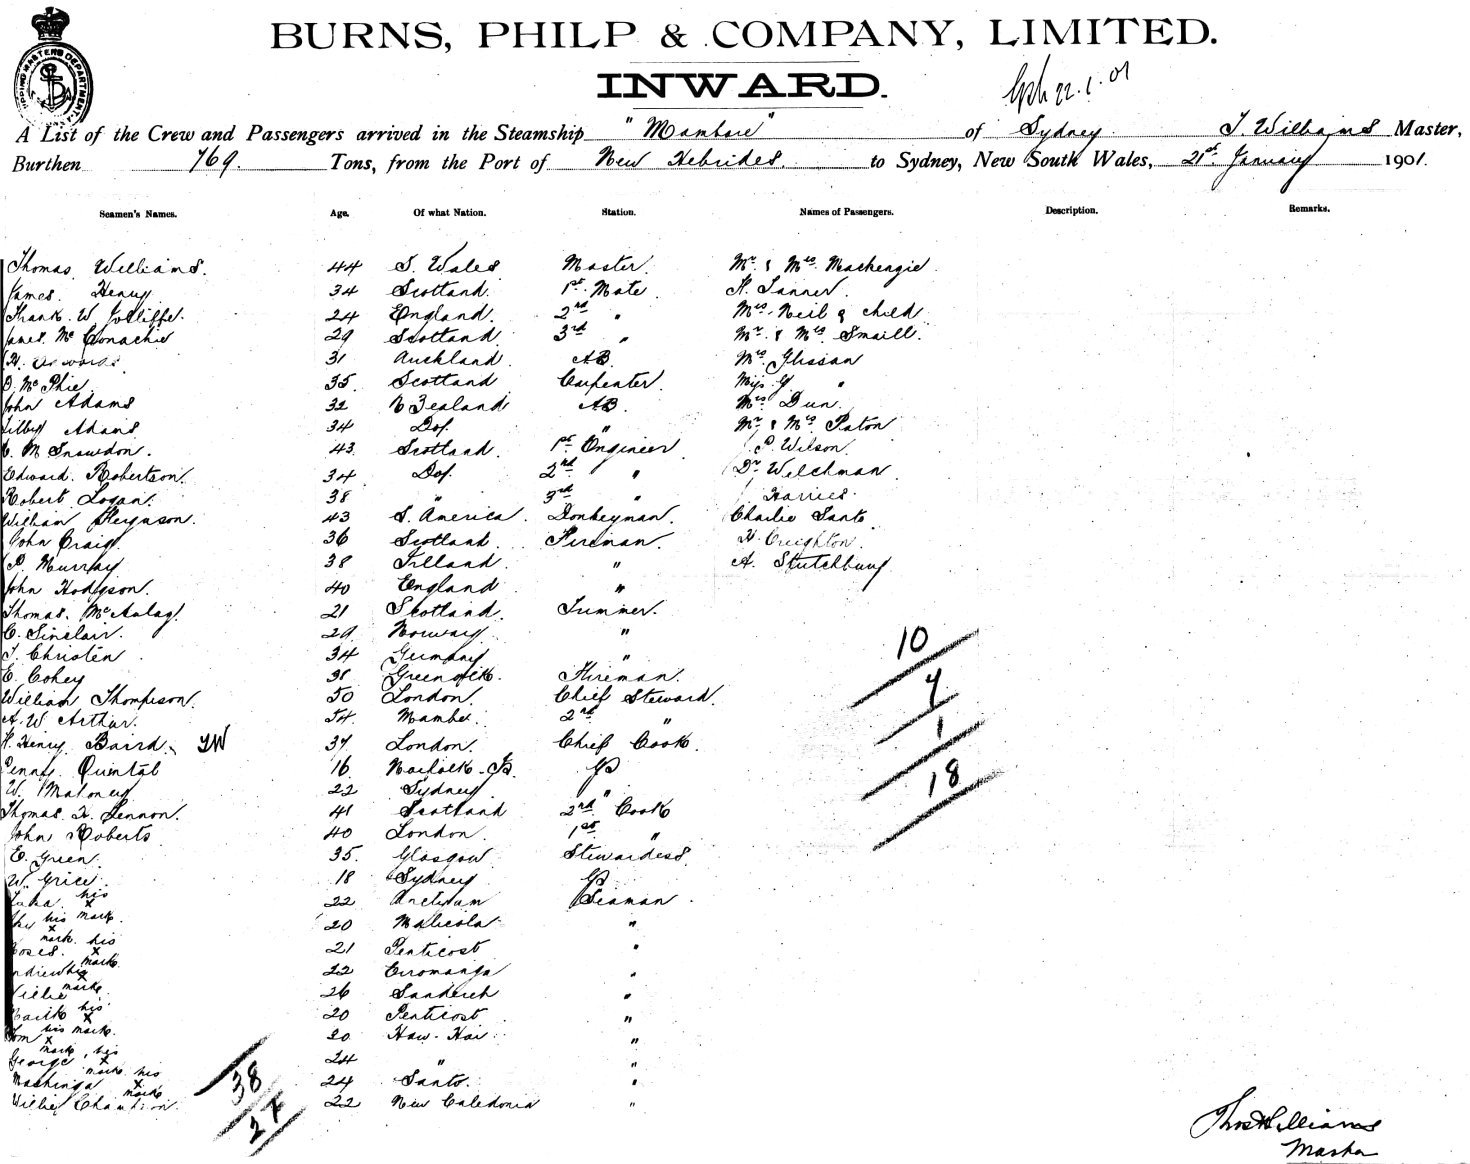 BURNS, PHILP & COMPANY, LIMITED.
INWARD.
22.1.01
A List of the Crew and Passengers arrived in the Steamship "Mambare" of Sydney T. Williams Master,
Burthen 769. Tons, from the Port of New Hebrides. to Sydney, New South Wales, 21st January 1901.
Seamen's Names. Age. Of what Nation. Station. Names of Passengers. Description. Remarks.
Thomas Williams. 44 S. Wales Master. Mr. & Mrs. Mackenzie.
James Henry 34 Scotland. 1st Mate H. Tanner.
Frank. W. Jolliffe. 24 England. 2nd " Mrs. Neil & child
James. McConachie 29 Scotland. 3rd " Mr. & Mrs. Smaill.
31 Auckland. AB. Mrs. Glissan
D. McPhie. 35. Scotland Carpenter. Miss G. "
John Adams 32 N Zealand AB. Mrs. Dun.
Adams 34 Do. " Mr. & Mrs. Paton
Snowdon. 43. Scotland. 1st. Engineer P. Wilson.
Edward. Robertson. 34 Do. 2nd " Dr. Welchman
Robert Logan. 38 " 3rd " Harries.
William Ferguson. 43 S. America. Donkeyman. Charlie Santo
John Craig. 36 Scotland. Fireman. H. Creighton.
P. Murray 38 Irland. " A. Stutchbury
John Hodgson. 40 England "
Thomas. McAulay. 21 Scotland. Trimmer.
C. Sinclair. 29 Norway. "
T. Christen 34 Germany "
E. Cohey 38 Greenock. Fireman.
William Thompson. 50 London. Chief Steward.
A. W. Arthur. 54. 2nd "
H. Henry Baird. TW 37 London. Chief Cook.
Penny. Quintal 16 Norfolk Is.
W. Maloney 22 Sydney "
Thomas. H. Lennon. 41 Scotland 2nd Cook
John Roberts. 40 London. 1st "
E. Green. 35. Glasgow Stewardess.
W. Grice. 18 Sydney
his x mark 22 Aneityum Seaman.
his x mark. 20 Malicola "
Moses. his x mark. 21 Penticost "
Andrew his x mark 22 Erromanga "
Willie 26 Sandwich "
his x mark. 20 Penticost "
Tom his x mark, 20. "
George his x mark 24 " "
his x mark 24 Santo. "
Willie Champion. 22 New Caledonia "
10
7
1
18
38
27
Thos Williams
Master